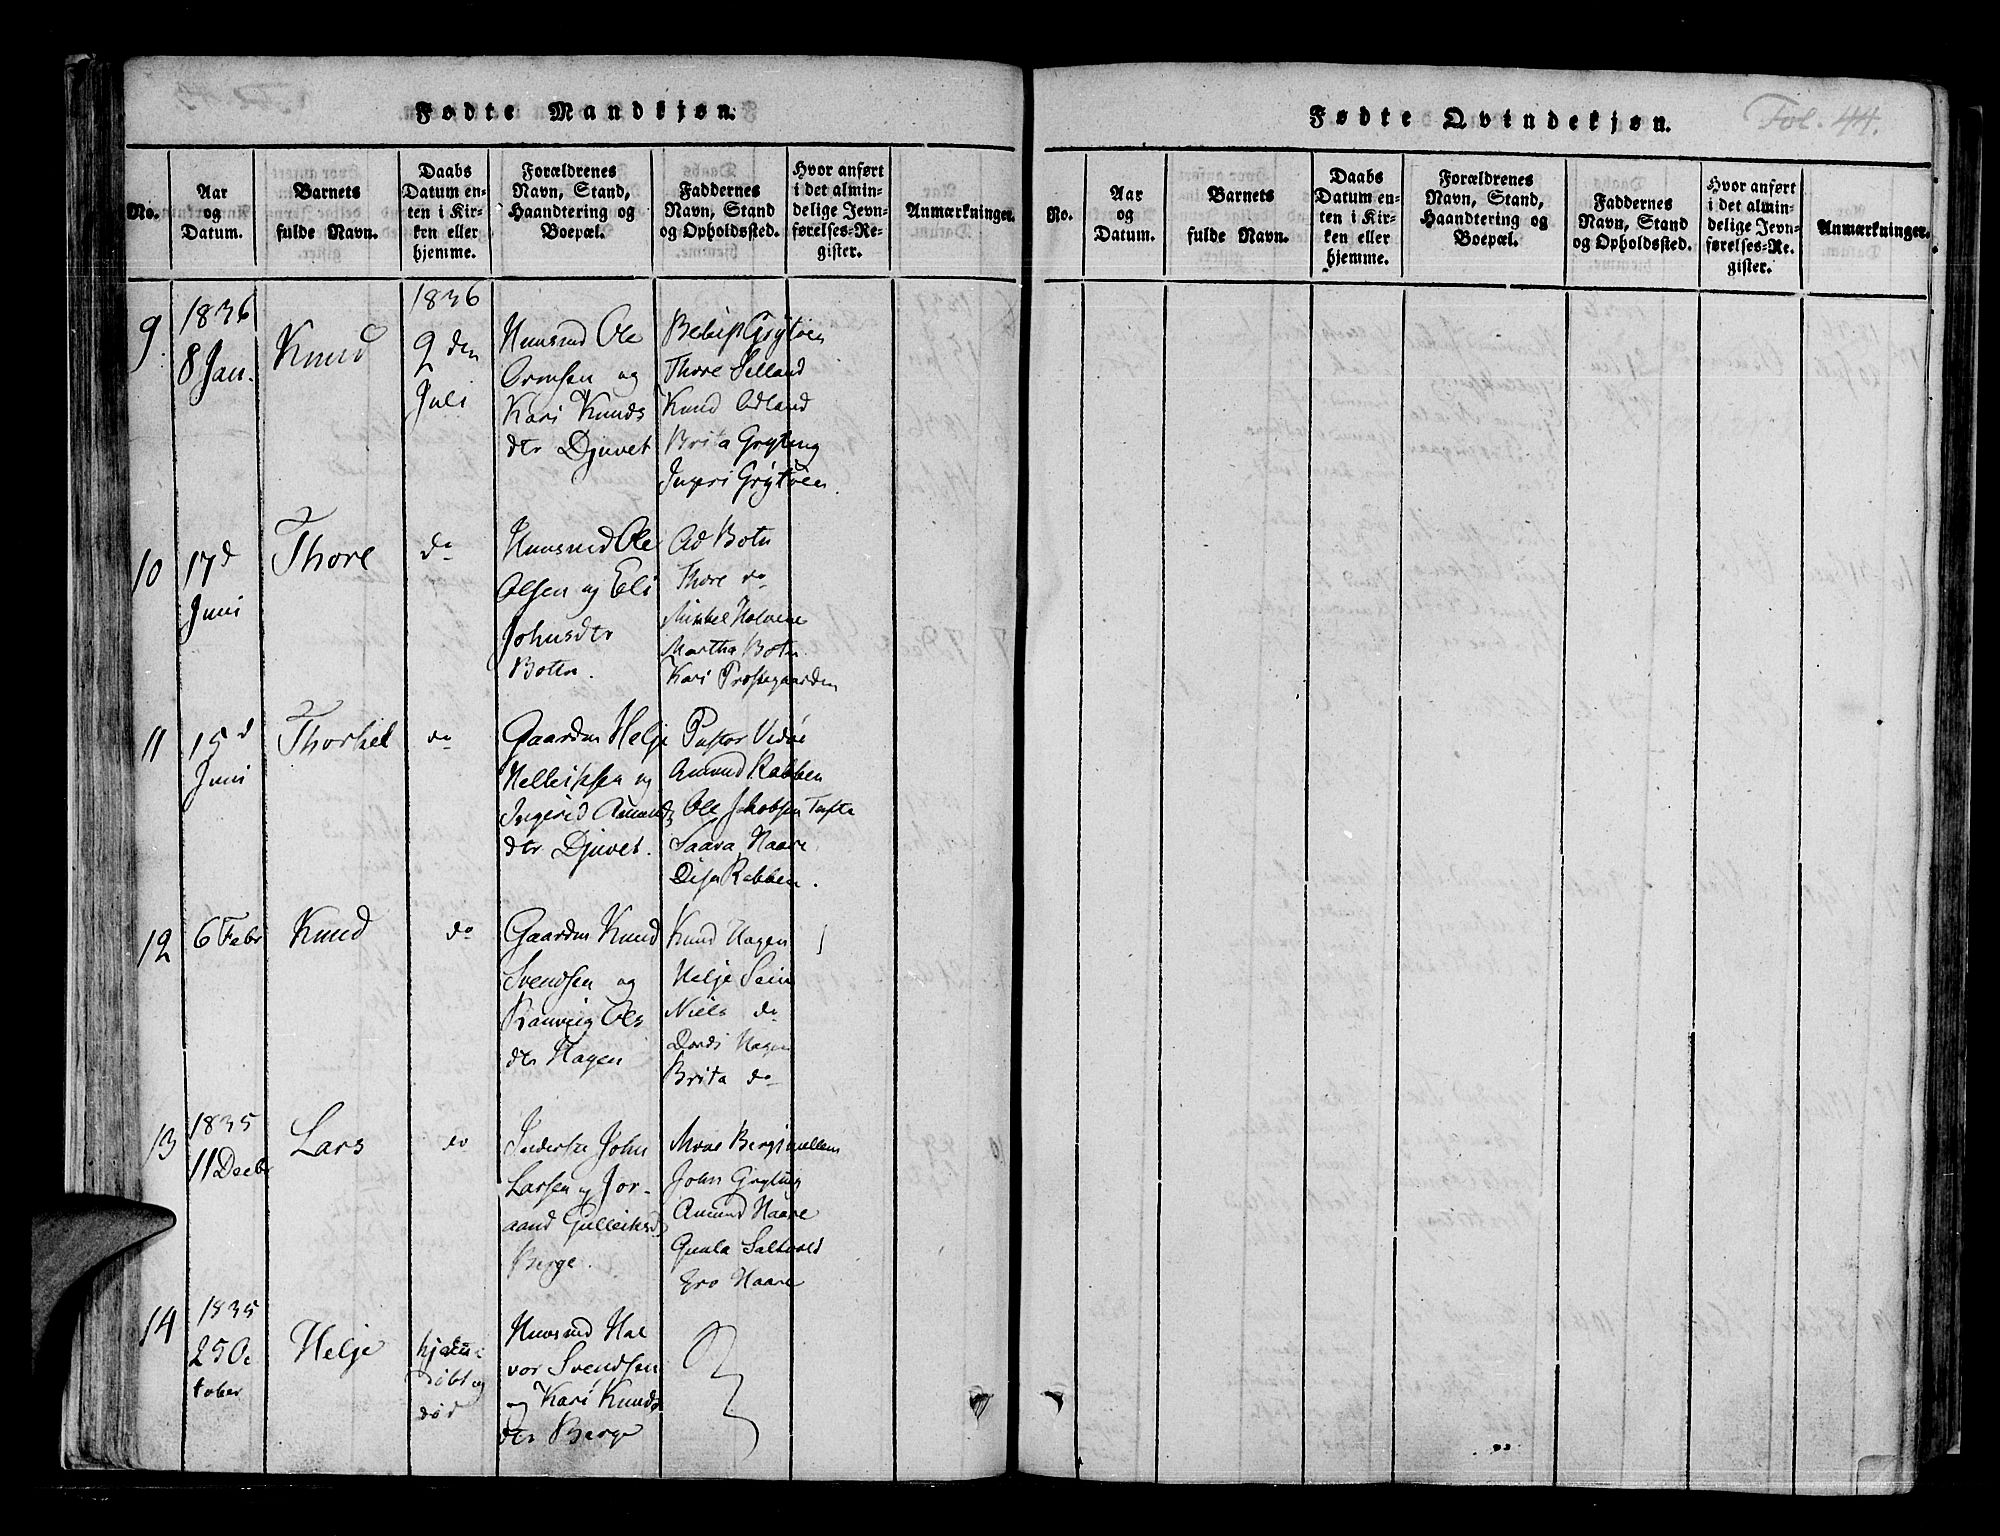 Fødte Mandkjøn.
No.
Aar
og
Datum.
Barnets
fulde Navn.
Daabs
Datum en-
ten i Kir-
ken eller
hjemme.
Forældrenes
Navn, Stand,
Haandtering og
Boepæl.
Faddernes
Navn, Stand
og Opholdssted.
Hvor anført
i det almin-
delige Jevn-
førelses-Re-
gister.
Anmærkninger.
9.
1836
8 Jan.
Knud
1836
2 den
Juli
Huusmd Ole
Ormsen og
Kari Knuds
dtr Djuvet
Grytøen
Thore Selland
Knud Odland
Brita Gryting
Ingeri Grytøen
10
17d
Juni
Thore
do
Huusmd Ole
Olsen og Eli
Johnsdtr
Botn.
Ad Botn
Thore do
Mikkel Halvene
Martha Botn
Kari Præstegaarden
11
15d
Juni
Thorkel
do
Gaardm Helje
Helleiksen og
Ingerid Amund
dtr Djuvet.
Pastor Vidøe
Amund Rabben
Ole Jakobsen Tufte
Saava Haare
Disa Rabben.
12
6 Febr
Knud
do
Gaardm Knud
Svendsen og
Ranveig Ols
dtr Hagen
Knud Hagen
Helje Seim
Niels do
Dordi Hagen
Brita do
13
1835
11 Decbr
Lars
do
Inderste John
Larsen og Jor-
aand Gulleiksd
Berge.
Mons Bergsmellem
John Gryting
Amund Haare
Gunla Saltvold
Gro Haare
14
1835
25 Oc
tober
Helje
hjem:
døbt og
død
Huusmd Hal
vor Svendsen
og Kari Knuds
dtr Berge
Fødte Qvindekjøn.
Fol. 44.
No.
Aar
og
Datum.
Barnets
fulde Navn.
Daabs
Datum en-
ten i Kir-
ken eller
hjemme.
Forældrenes
Navn, Stand,
Haandtering og
Boepæl.
Faddernes
Navn, Stand
og Opholdssted.
Hvor anført
i det almin-
delige Jevn-
førelses-Re-
gister.
Anmærkninger.